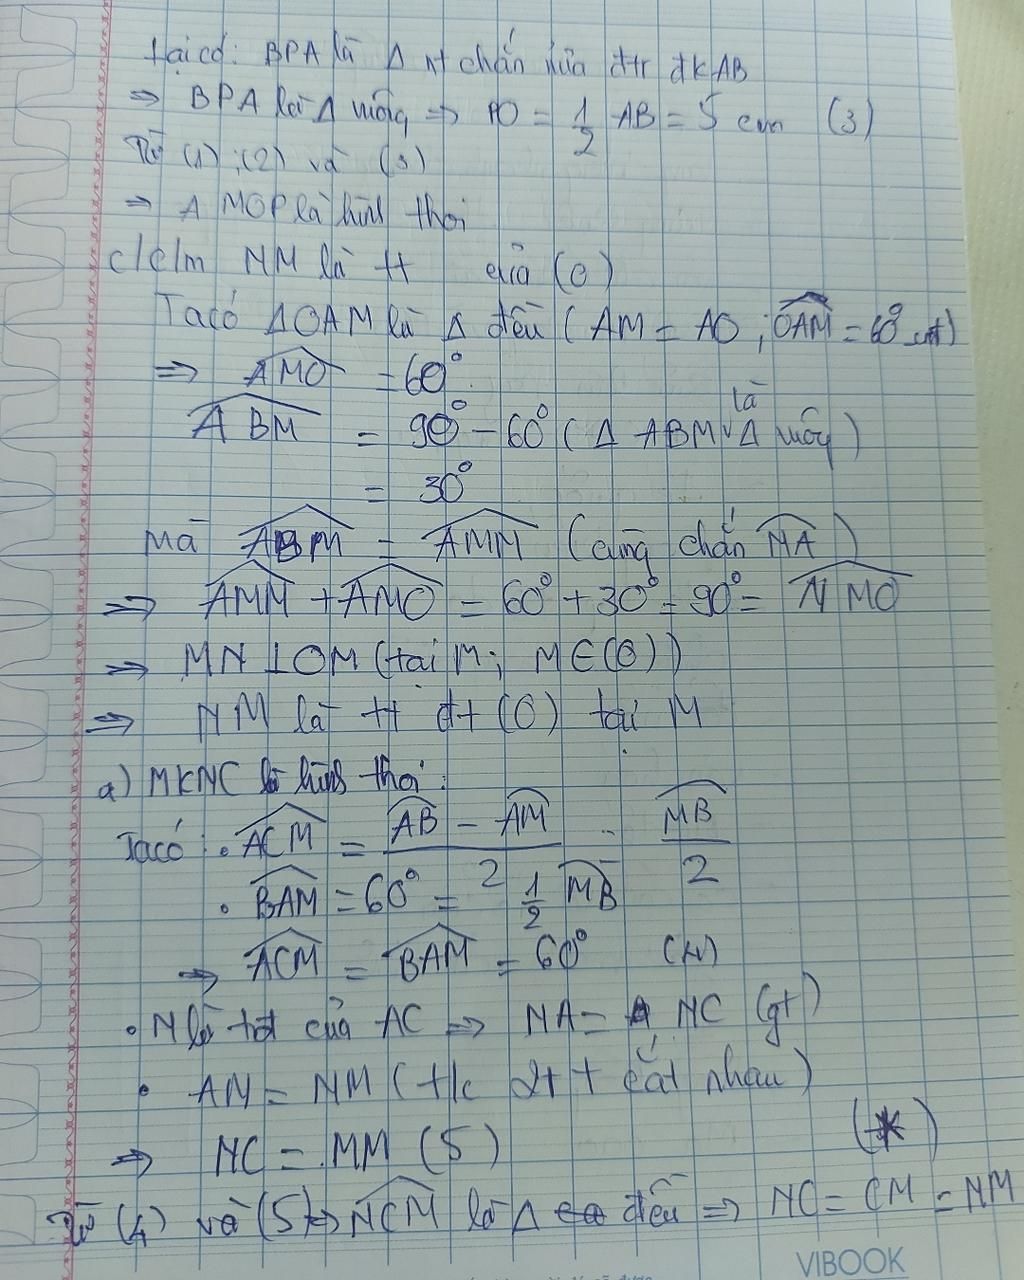 Ta có: BPA là Δ nt chắn nửa đtr đk AB
⇒ BPA là Δ vuông ⇒ PO = 1/2 AB = 5 cm (3)
Từ (1); (2) và (3)
⇒ AMOP là hình thoi
c/ c/m NM là tt của (O)
Ta có ΔOAM là Δ đều (AM = AO; OAM = 60° cmt)
⇒ AMO = 60°
ABM = 90° - 60° (Δ ABM là Δ vuông)
= 30°
Mà ABM = AMN (cùng chắn MA)
⇒ AMN + AMO = 60° + 30° = 90° = NMO
⇒ MN ⊥ OM (tại M; M ∈ (O))
⇒ NM là tt đt (O) tại M
a) MKNC là hình thoi:
Ta có: • ACM = (AB - AM)/2 = MB/2
• BAM = 60° = 1/2 MB
⇒ ACM = BAM = 60° (4)
• N là tđ của AC ⇒ NA = NC (gt)
• AN = NM (t/c 2tt cắt nhau)
⇒ NC = NM (5) (*)
Từ (4) và (5) ⇒ NCM là Δ đều ⇒ NC = CM = NM
VIBOOK